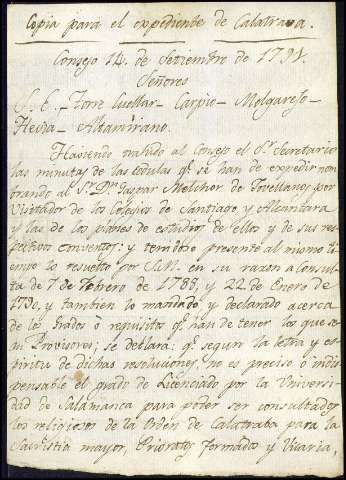 Copia para el expediente de Calatrava.
Consejo 14. de Setiembre de 1791.
Señores
S. E. Torre Cuellar - Carpio - Melgarejo -
Hevia - Altamirano.
Haviendo trahido al Consejo el Sr. Secretario
las minutas de las cedulas qe. se han de expedir nom
brando al Sr. Dn. Gaspar Melchor de Jovellanos por
Visitador de los Colegios de Santiago, y Alcantara
y las de los planes de estudios de ellos y de sus res
pectivos conventos: y teniendose presente al mismo ti
empo lo resuelto por S.M. en su razon a consul
ta de 7 de Febrero de 1788, y 22 de Enero de
1790, y tambien lo mandado, y declarado acerca
de los grados o requisitos qe. han de tener los que se
an Provisores; se declara: qe. segun la letra y es
piritu de dichas resoluciones, no es preciso o indis
pensable el grado de Licenciado por la Universi
dad de Salamanca para poder ser consultados
los religiosos de la Orden de Calatraba para la
Sacristia mayor, Prioratos formados y Vicaria,